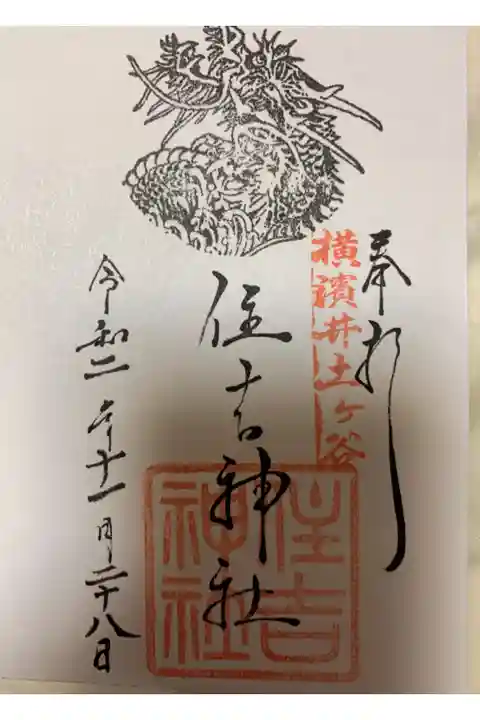 奉拝
横濱井土ヶ谷
住吉神社
住吉神社
令和二年十一月二十八日